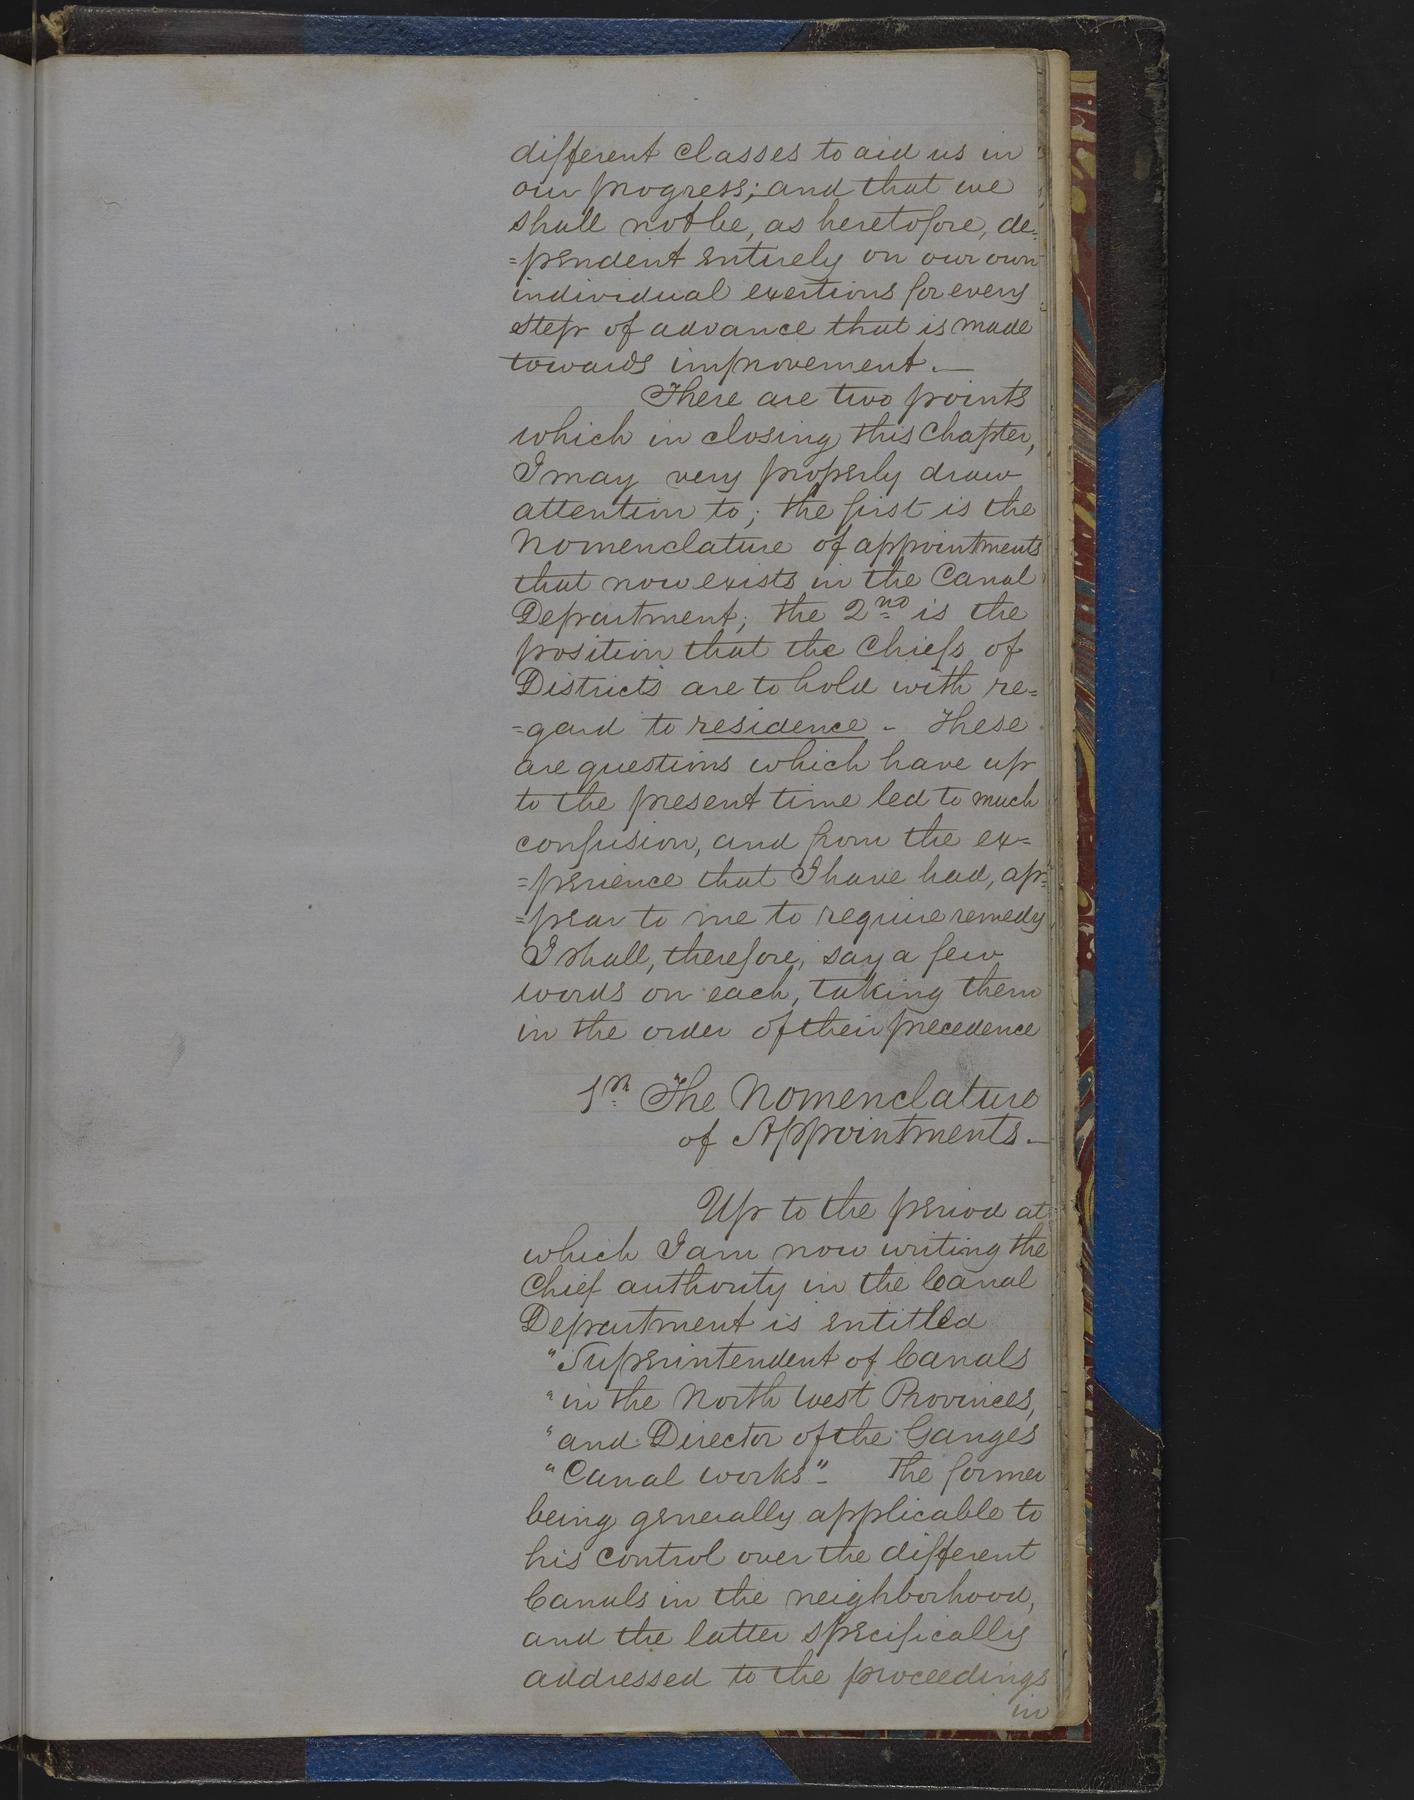 different classes to aid us in
our progress; and that we
shall not be, as heretofore, de=
=pendent entirely on our own
individual exertions for every
step of advance that is made
towards improvement.—
There are two points
which in closing this Chapter,
I may very properly draw
attention to; the first is the
Nomenclature of appointments
that now exists in the Canal
Department; the 2nd is the
position that the Chiefs of
Districts are to hold with re=
=gard to residence - These
are questions which have up
to the present time led to much
confusion, and from the ex=
=perience that I have had, ap=
=pear to me to require remedy
I shall, therefore, say a few
words on each, taking them
in the order of their precedence
The Nomenclature
of Appointments.—
Up to the period at
which I am now writing the
Chief authority in the Canal
Department is entitled
"Superintendent of Canals
"in the North West Provinces,
"and Director of the Ganges
"Canal works"- The former
being generally applicable to
his control over the different
Canals in the neighborhood,
and the latter specifically
addressed to the proceedings
in